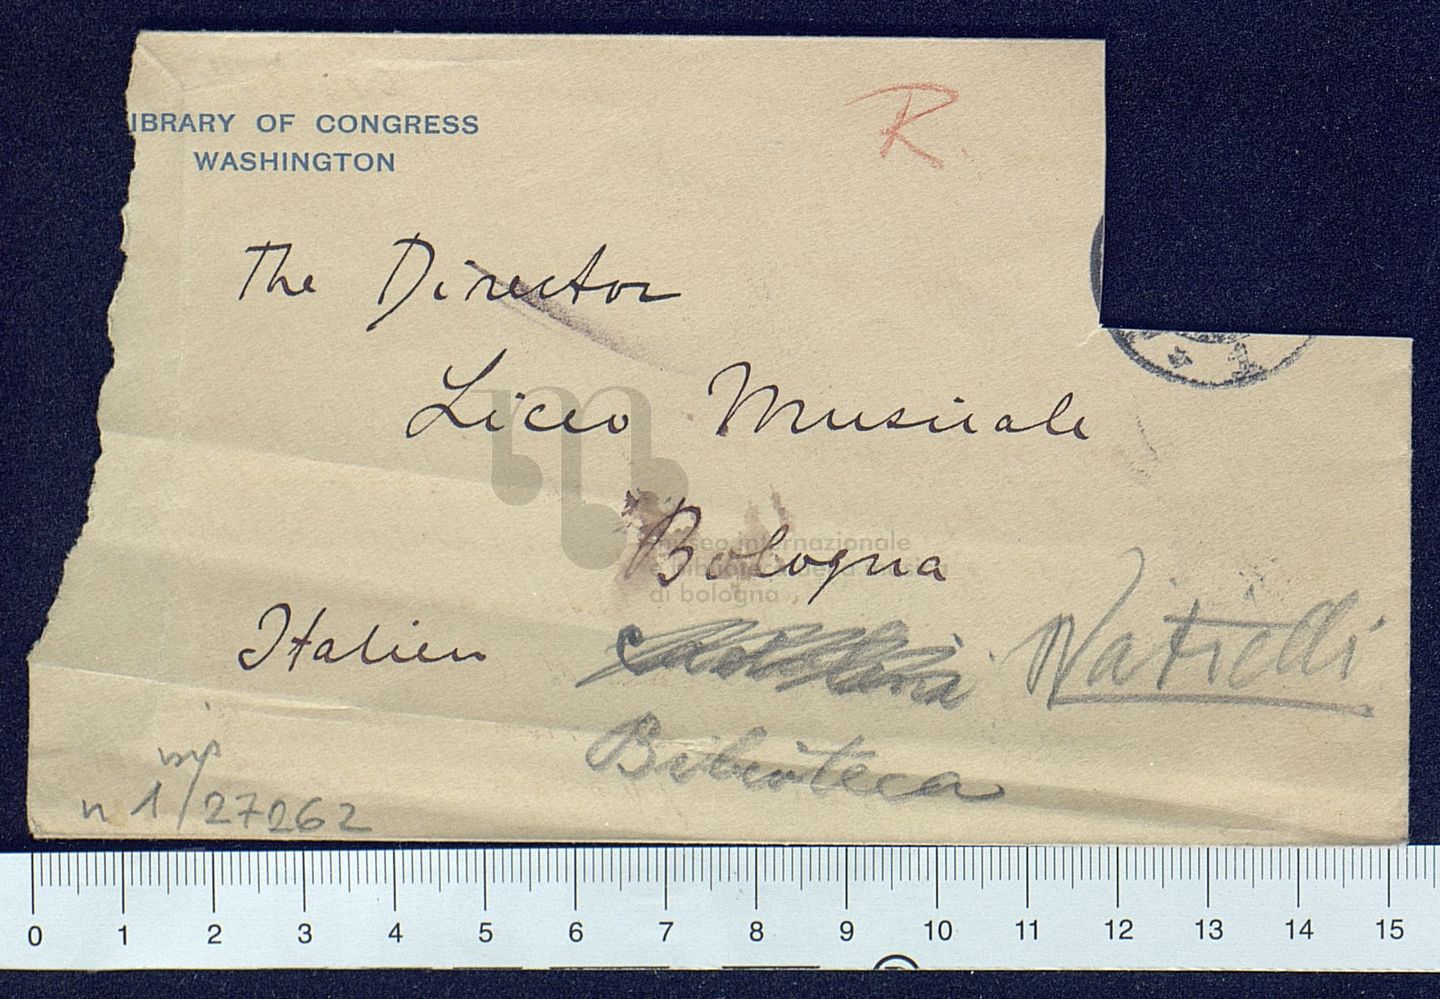 IBRARY OF CONGRESS
WASHINGTON
R.
The Director
Liceo Musicale
Bologna
museo internazionale
di bologna
Italien
Vatielli
Biblioteca
n 1/27262
0 1 2 3 4 5 6 7 8 9 10 11 12 13 14 15